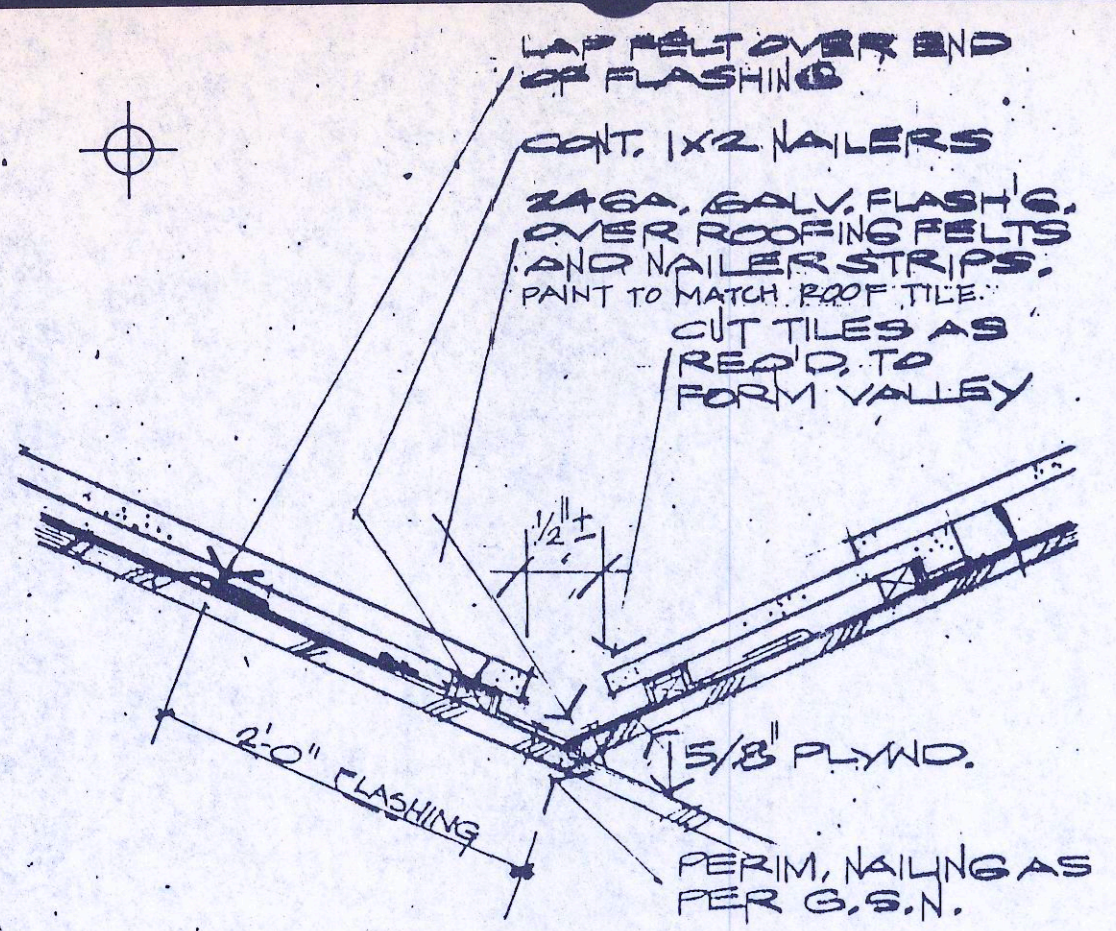 LAP FELT OVER END
OF FLASHING
CONT. 1X2 NAILERS
24 GA. GALV. FLASH'G.
OVER ROOFING FELTS
AND NAILER STRIPS.
PAINT TO MATCH ROOF TILE.
CUT TILES AS
REQ'D. TO
FORM VALLEY
1/2" ±
2'-0" FLASHING
5/8" PLYWD.
PERIM. NAILING AS
PER G.S.N.